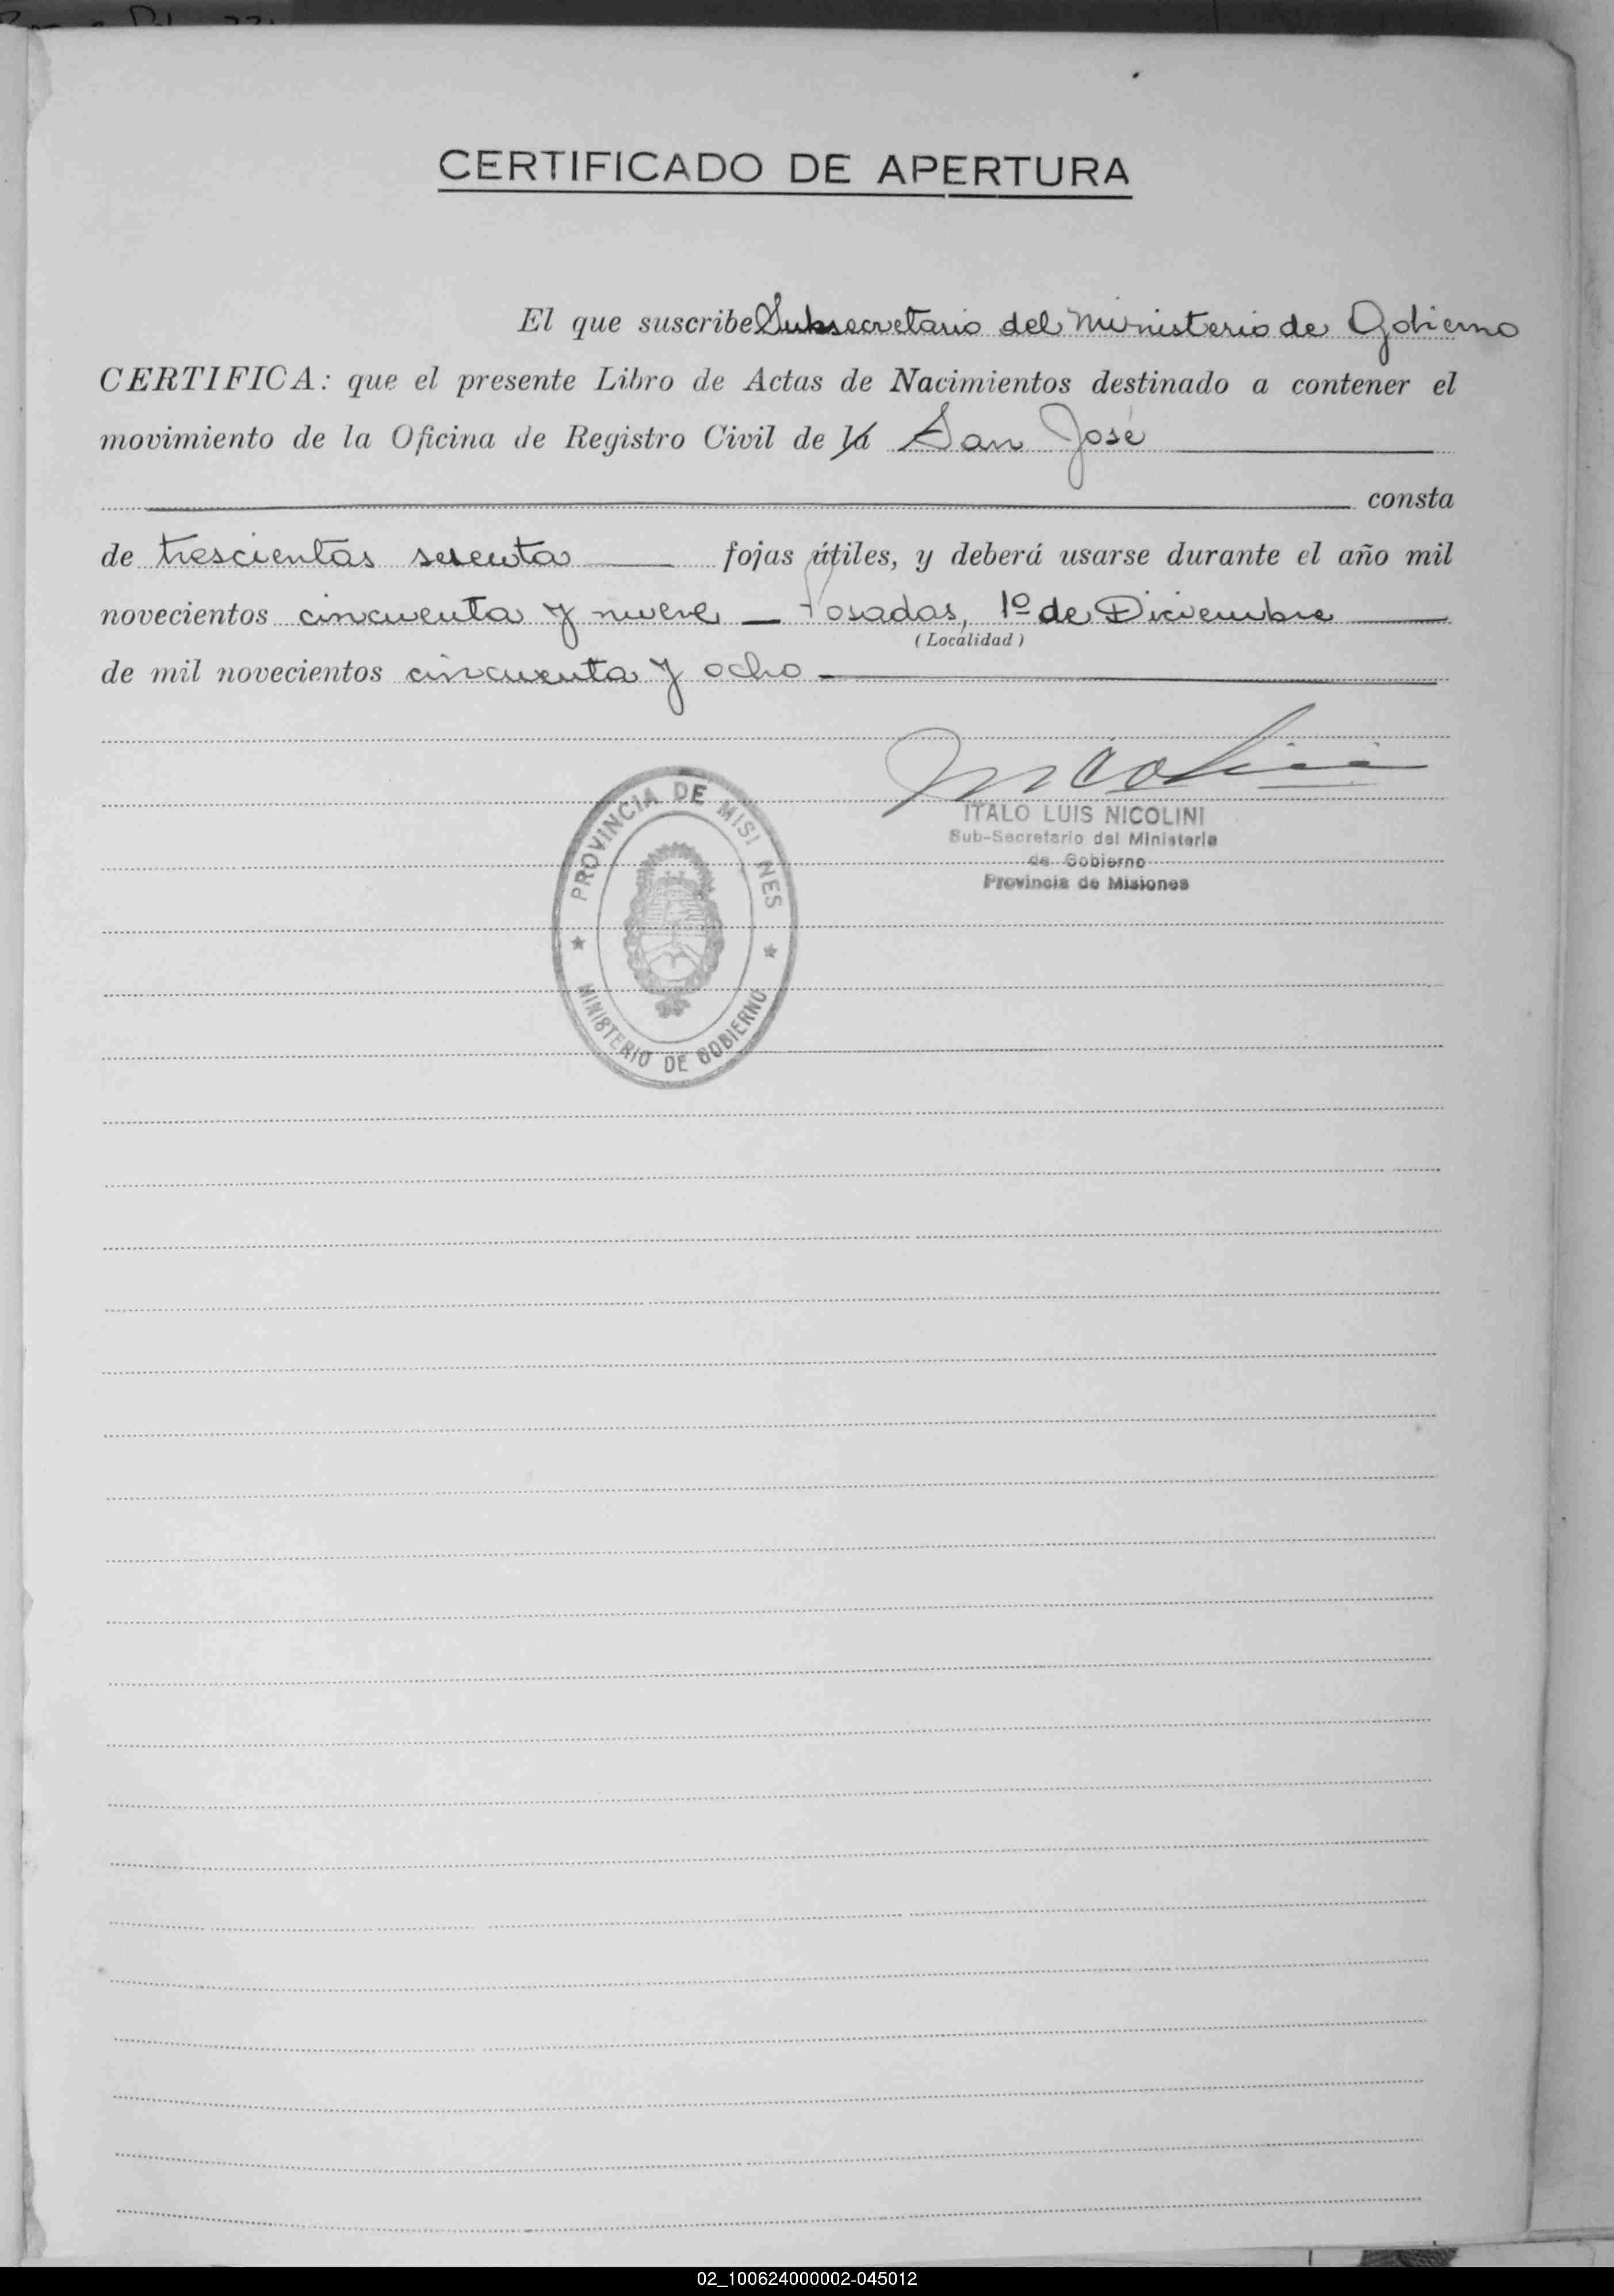 CERTIFICADO DE APERTURA
El que suscribe Subsecretario del Ministerio de Gobierno
CERTIFICA: que el presente Libro de Actas de Nacimientos destinado a contener el
movimiento de la Oficina de Registro Civil de la San José
consta
de trescientas sesenta fojas útiles, y deberá usarse durante el año mil
novecientos cincuenta y nueve Posadas, 1º de Diciembre
(Localidad)
de mil novecientos cincuenta y ocho
Nicolini
ITALO LUIS NICOLINI
Sub-Secretario del Ministerio
de Gobierno
Provincia de Misiones
PROVINCIA DE MISI NES
MINISTERIO DE GOBIERNO
02_100624000002-045012